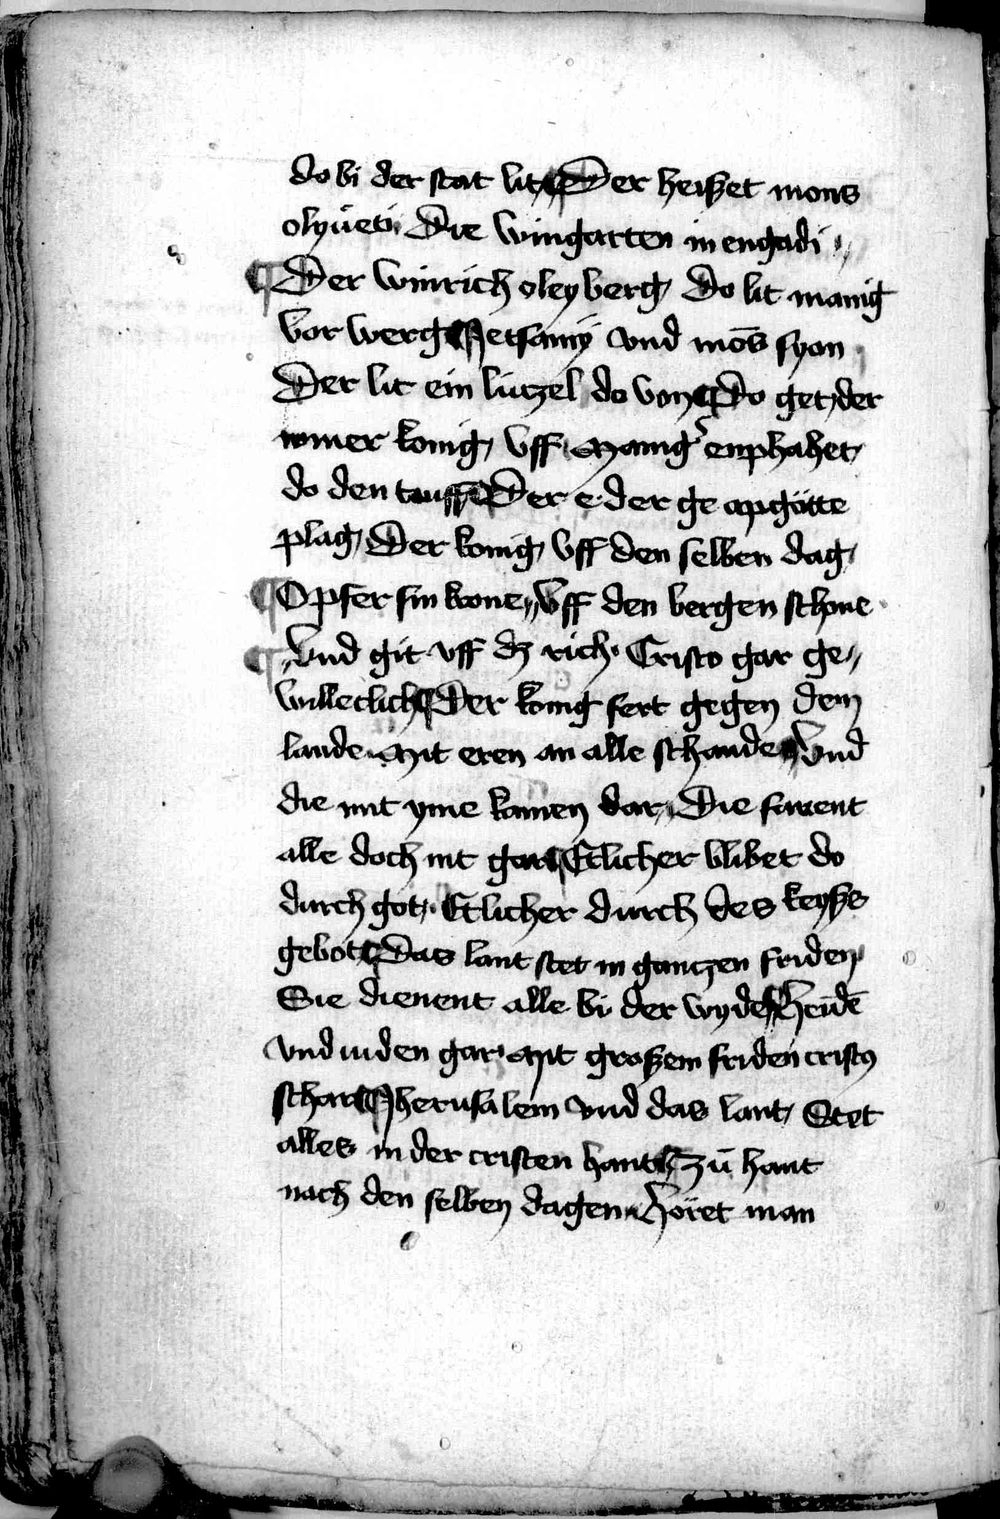 do bi der stat lit, ¶ Der heisset mons
olyueti. Die wingarten in engadi
¶ Der winrich oleyberg, Do lit manig
vor werg ¶ Jetsamy vnd mōs syon
Der lit ein lützel do von ¶ Do get, der
romer konig, vff. Manig enphahet,
do den tauff ¶ Der e der ge apgötte
plag, Der konig, vff den selben dag,
¶ Opfer sin krone, vff den bergen schone
¶ Vnd git vff dz rich. Cristo gar ge„
willeclich ¶ Der konig fert gegen dem
lande. Mit eren an alle schande ¶ Vnd
die mit yme komen dar, Die farent
alle doch nit gar ¶ Etlicher blibet do
durch got, Etlicher durch des keyss
gebot ¶ Das lant stet in gantzen friden
Sie dienent alle bi der wyde ¶ Heidē
vnd iuden gar. Mit grossem friden cristus
schar ¶ Jherusalem vnd das lant, Stet
alles in der cristen hant ¶ Zü hant
nach den selben dagen. Höret man